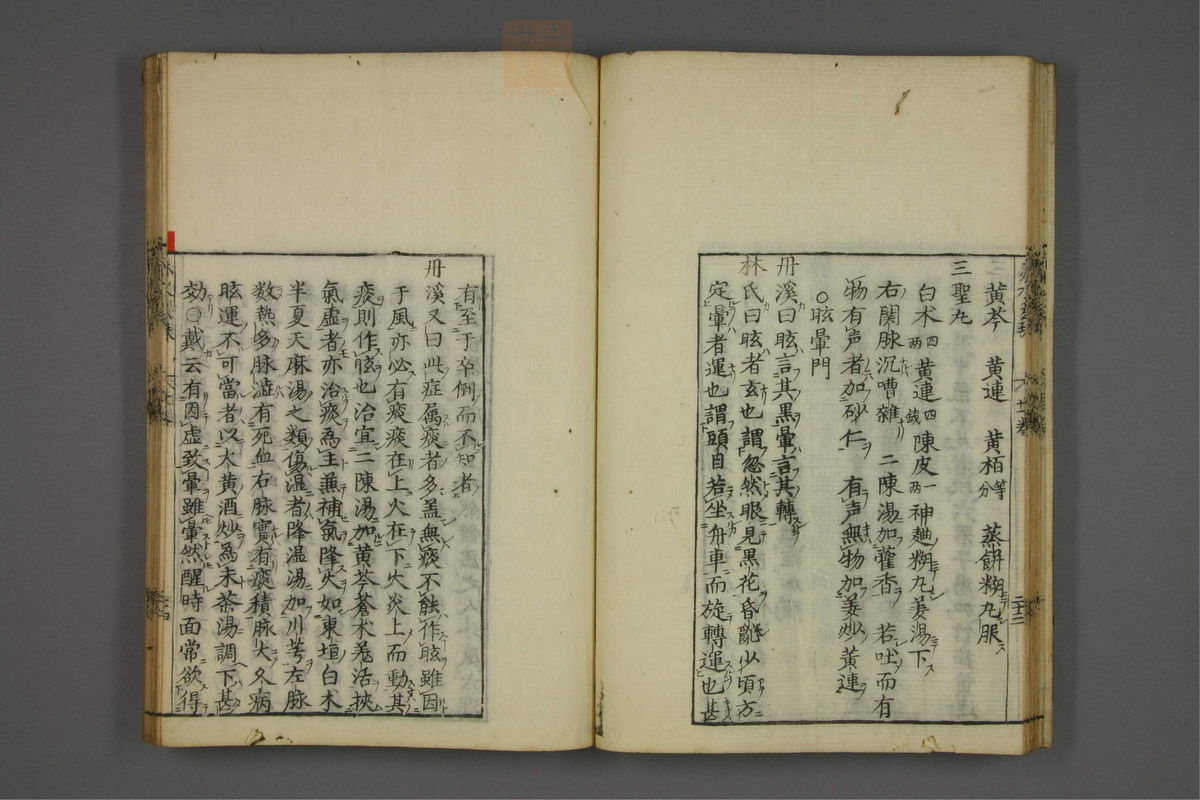 黄芩 黄連 黄栢等分 蒸餅糊丸服
三聖丸
白朮四兩 黄連四錢 陳皮一兩 神麯糊丸姜湯下
右関脉沉嘈雜 二陳湯加藿香 若吐而有
物有声者加砂仁 有声無物加姜炒黄連
○眩暈門
丹溪曰眩言其黒暈言其轉
林氏曰眩者玄也謂忽然眼見黒花昏亂少頃方
定暈者運也謂頭目若坐舟車而旋轉運也甚
有至于卒倒而不知者
丹溪又曰此症属痰者多盖無痰不能作眩雖因
于風亦必有痰痰在上火在下火炎上而動其
痰則作眩也治宜二陳湯加黄芩蒼朮羌活挾
氣虚者亦治痰為主兼補氣降火如東垣白朮
半夏天麻湯之類傷温者降温湯加川芎左脉
数熱多脉濇有死血右脉實有痰積脉大久病
眩運不可當者以大黄酒炒為末茶湯調下甚
効○戴云有因虚致暈雖暈然醒時面常欲得